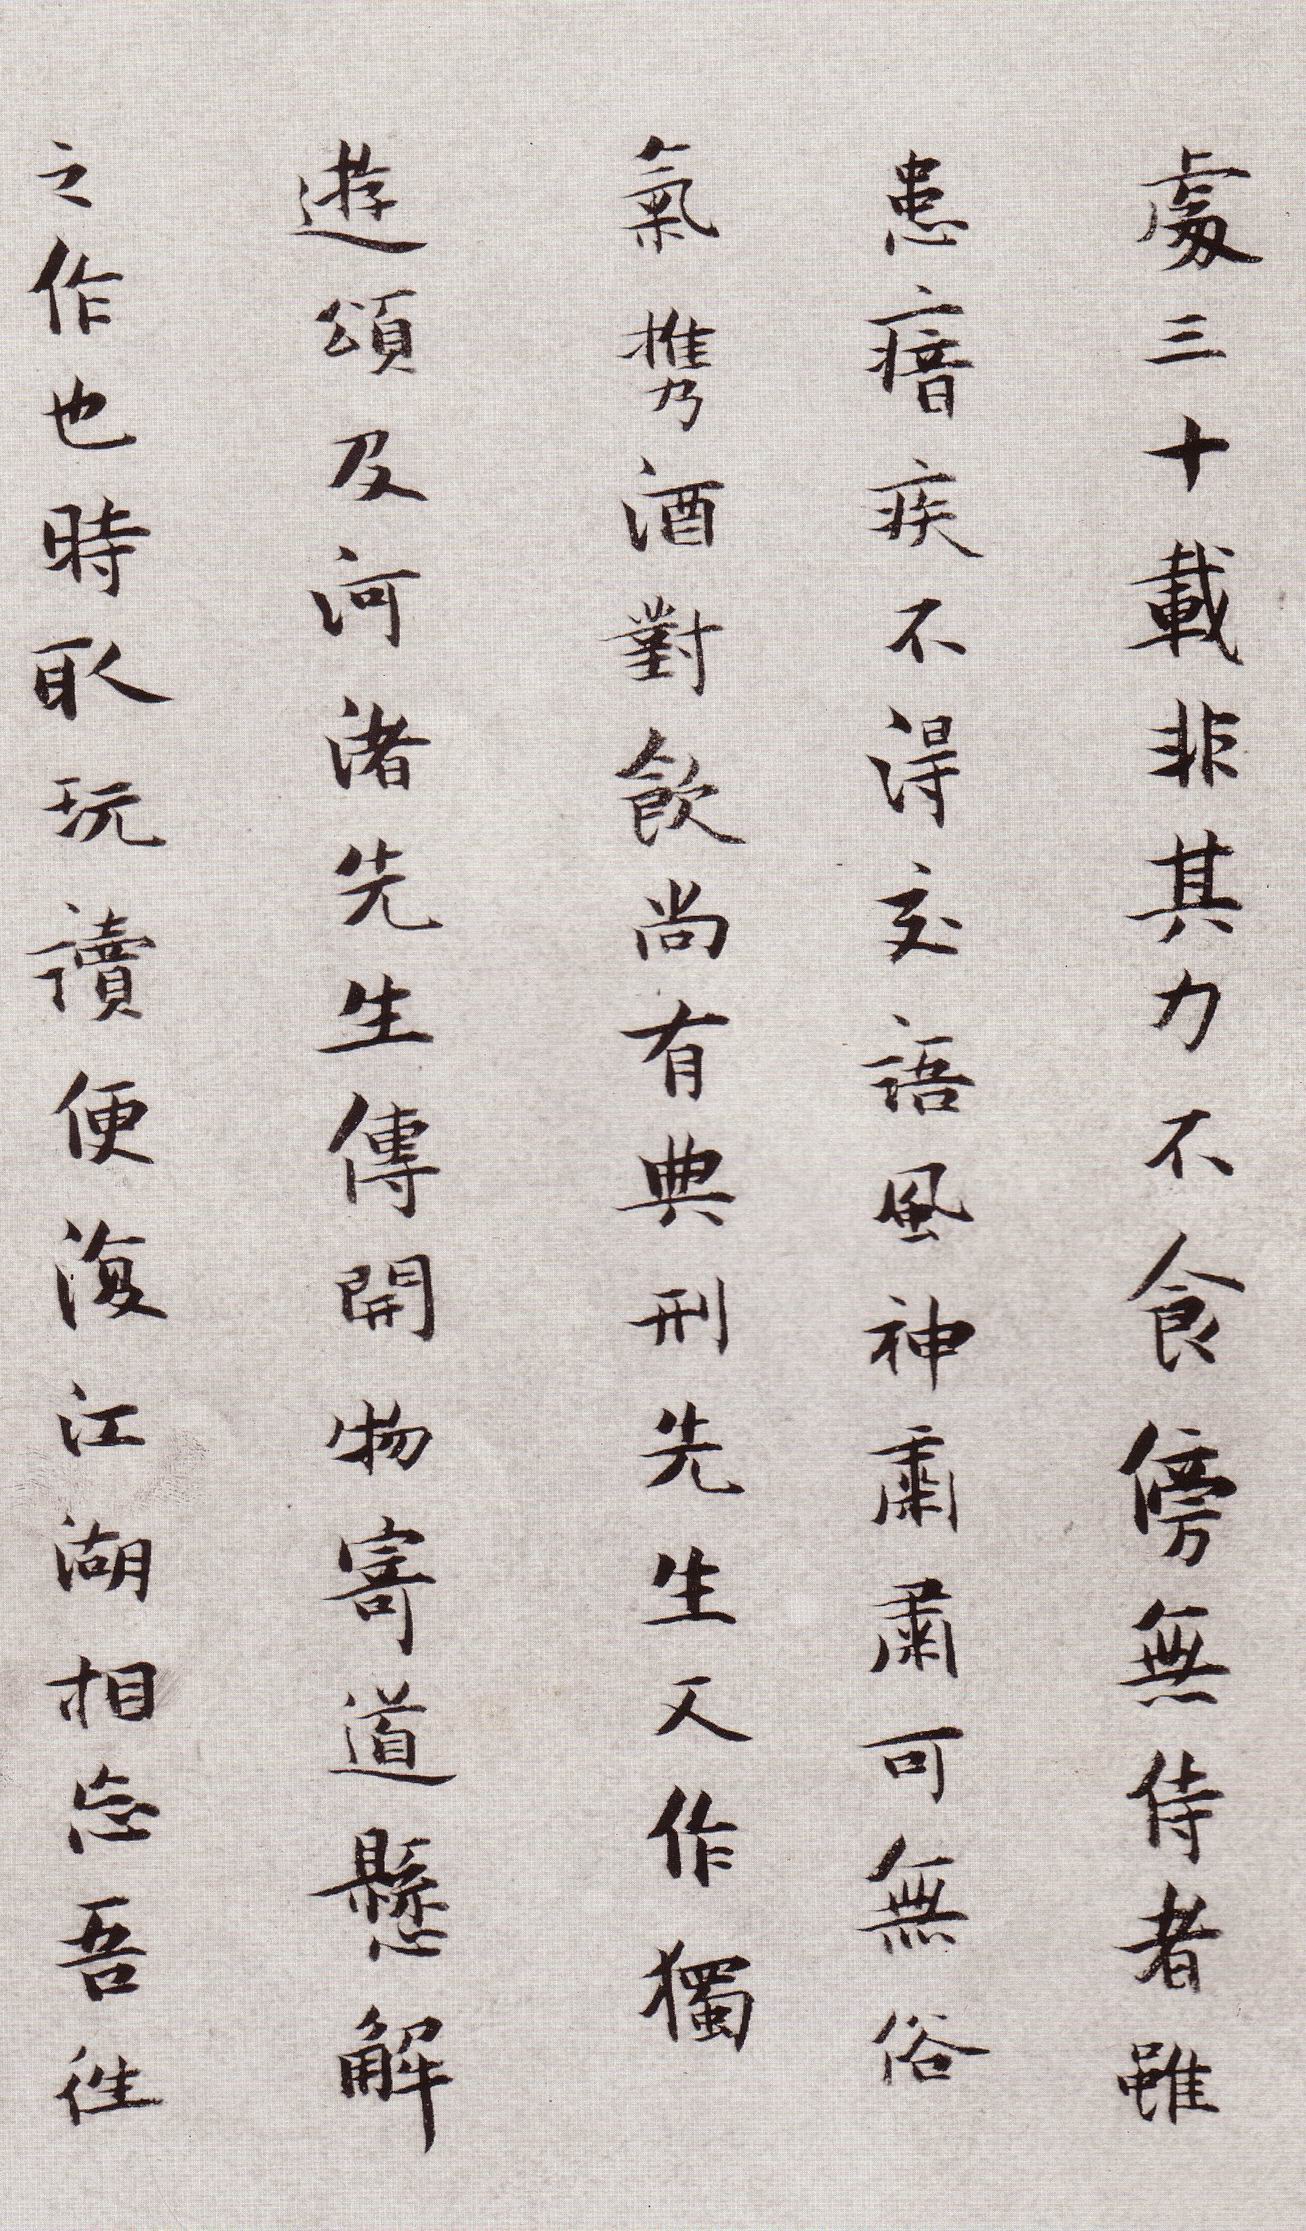 處三十載非其力不食傍無侍者雖
患瘖疾不得交語風神肅肅可無俗
氣携酒對飲尚有典刑先生又作獨
遊頌及河渚先生傳開物寄道懸解
之作也時取玩讀便復江湖相忘吾往